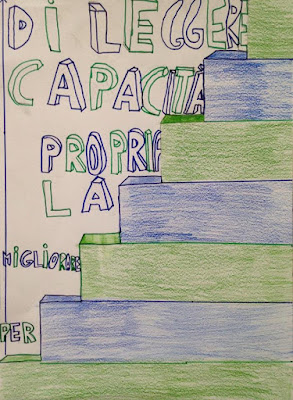 PER
MIGLIORARE
LA
PROPRIA
CAPACITÀ
DI LEGGERE